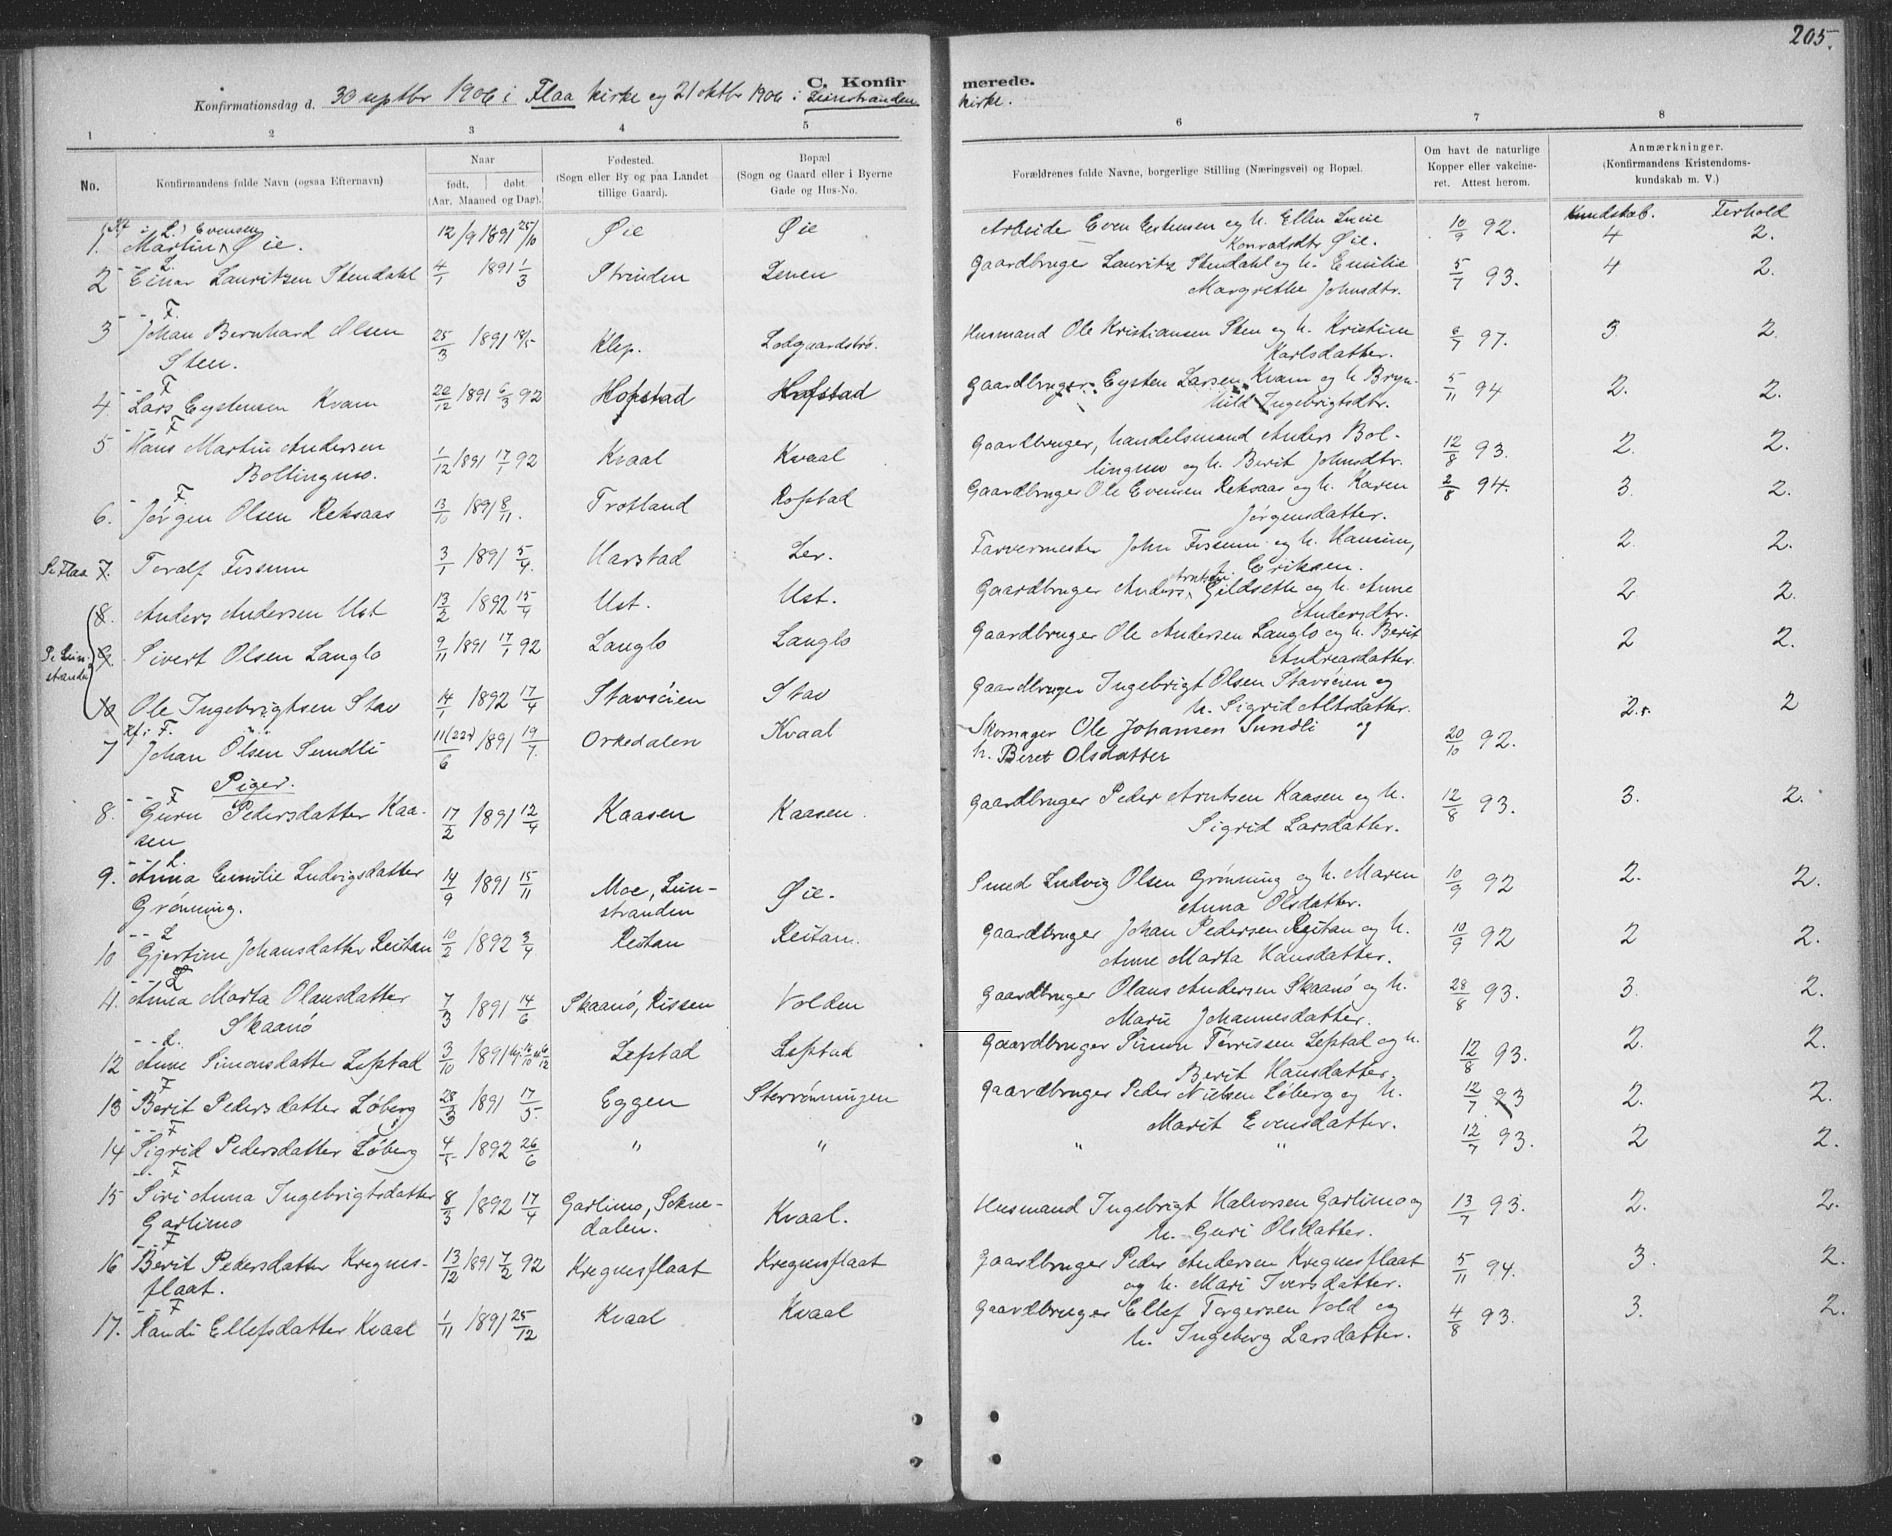 205.
C. Konfirmerede.
Konfirmationsdag d. 30 septbr 1906 i Flaa kirke og 21 oktbr 1906 i Leinstranden kirke.
1 2 3 4 5 6 7 8
No.
Konfirmandens fulde Navn (ogsaa Efternavn)
Naar
født. | døbt.
(Aar, Maaned og Dag).
Fødested.
(Sogn eller By og paa Landet
tillige Gaard).
Bopæl
(Sogn og Gaard eller i Byerne
Gade og Hus-No.
Forældrenes fulde Navne, borgerlige Stilling (Næringsvei) og Bopæl.
Om havt de naturlige
Kopper eller vakcine-
ret. Attest herom.
Anmærkninger.
(Konfirmandens Kristendoms-
kundskab m. V.)
Kundskab. Forhold
1. Martin Evensen Øie. 12/9 1891 25/10 Øie Øie Arbeider Even Estensen og h. Ellen Lucie Konradsdtr Øie. 10/9 92. 4 2.
2 Einar Lauritzen Stendahl 4/1 1891 1/3 Strinden Leren Gaardbruger Lauritz Stendahl og h. Emilie Margrethe Johnsdtr. 5/7 93. 4 2.
F
3 Johan Bernhard Olsen Sten. 25/3 1891 18/5 Klep. Husmand Ole Kristiansen Sten og h. Kristine Karlsdatter. 6/7 97. 3. 2.
F
4 Lars Eystensen Kvam 20/12 1891 6/3 92 Hofstad Hofstad Gaardbruger Eysten Larsen Kvam og h Brynhild Ingebrigtsdtr. 5/11 94 2. 2.
F
5 Hans Martin Andersen Bollingmo. 1/12 1891 17/1 92 Kvaal Kvaal Gaardbruger, handelsmand Anders Bollingmo og h. Berit Johnsdtr. 12/8 93. 2. 2.
F
6. Jørgen Olsen Reksaas 13/10 1891 8/11. Trotland Rofstad Gaardbruger Ole Evensen Reksaas og h. Karen Jørgensdatter. 2/8 94. 3. 2.
Se Flaa 7. Toralf Fissum 3/1 1891 5/4. Harstad Ler. Farvermester John Fissum og h. Hansine, f. Eriksen. 2. 2.
8. Anders Andersen Ust 13/2 1892 15/4 Ust. Ust. Gaardbruger Anders Arntsen Gildseth og h. Anne Andersdtr. 2 2.
Se Leinstranden 9. Sivert Olsen Langlo 9/11 1891 17/1 92 Langlo Langlo Gaardbruger Ole Andersen Langlo og h. Berit Andreasdatter. 2 2.
10 Ole Ingebrigtsen Stav 14/1 1892 17/4 Stavsøien Stav Gaardbruger Ingebrigt Olsen Stavsøien og h. Sigrid Altsdatter. 2. 2
Kf. i F.
7 Johan Olsen Sundli 11(22?)/6 1891 19/7. Orkedalen Kvaal Skomager Ole Johansen Sundli og h. Beret Olsdatter 20/10 92.
Piger.
F
8. Guru Pedersdatter Kaasen 17/2 1891 12/4 Kaasen Kaasen. Gaardbruger Peder Arntsen Kaasen og h. Sigrid Larsdatter. 12/8 93. 3. 2.
L.
9. Anna Emilie Ludvigsdatter Grønning. 14/9 1891 15/11 Moe, Leinstranden Øie. Smed Ludvig Olsen Grønning og h. Maren Anna Olsdatter. 10/9 92 2. 2.
L
10 Gjertine Johansdatter Reitan 10/2 1892 3/4 Reitan Reitan. Gaardbruger Johan Pedersen Reitan og h. Anne Marta Hansdatter. 10/9 92 2 2.
L
11. Anna Marta Olausdatter Skaanø 7/3 1891 14/6 Skaanø, Rissen Volden Gaardbruger Olaus Andersen Skaanø og h. Marie Johannesdatter. 28/8 93. 3. 2.
L.
12 Anne Simonsdatter Lefstad 3/10 1891 Lefstad Lefstad Gaardbruger Simon Tørrissen Lefstad og h. Berit Hansdatter. 12/8 93. 2. 2.
F
13 Berit Pedersdatter Løberg 28/3 1891 17/5. Eggen Størrønningen Gaardbruger Peder Nielsen Løberg og h. Marit Evensdatter. 12/7 93 2. 2.
F
14 Sigrid Pedersdatter Løberg 4/5 1892 26/6 " " " " 12/7 93. 2 2.
F
15 Siri Anna Ingebrigtsdatter Garlimo 8/3 1892 17/4 Garlimo, Soknedalen. Kvaal. Husmand Ingebrigt Halvorsen Garlimo og h. Guri Olsdatter. 13/7 93. 2. 2.
F
16 Berit Pedersdatter Kregnesflaat. 13/12 1891 7/2 92 Kregnesflaat Kregnesflaat Gaardbruger Peder Andersen Kregnesflaat og h. Mari Iversdatter. 5/11 94. 3. 2.
F
17. Randi Ellefsdatter Kvaal 1/11 1891 25/12 Kvaal Kvaal Gaardbruger Ellef Torgersen Vold og h. Ingeborg Larsdatter. 4/8 93. 3. 2.